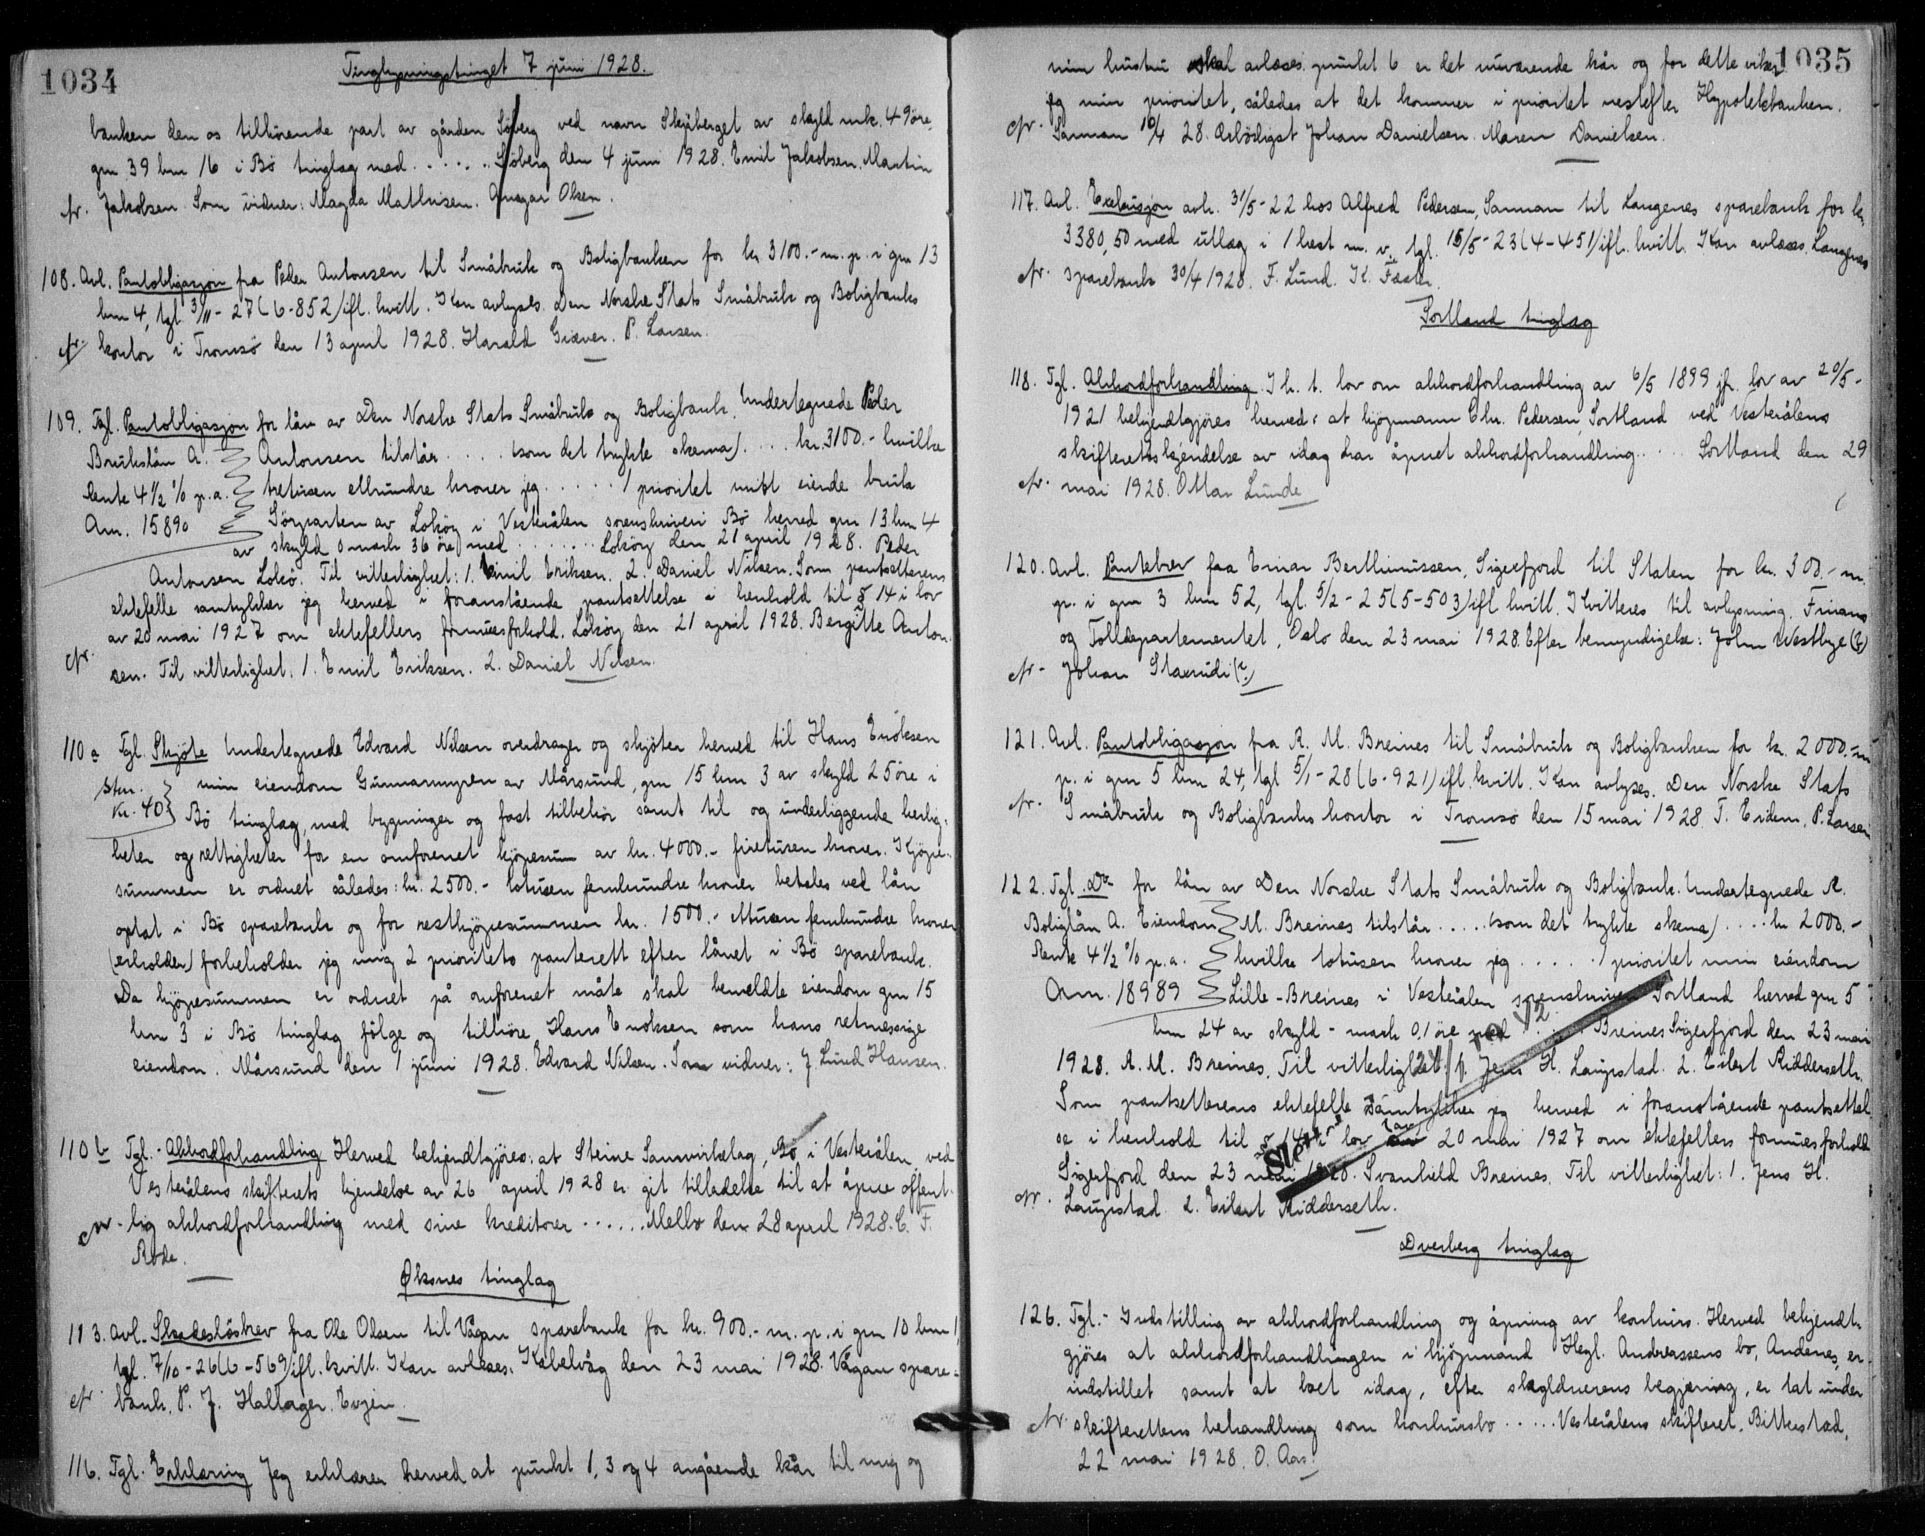 1034
Tinglysningstinget 7 juni 1928.
banken den os tilhörende part av gården Sjöberg ved navn Skjåberget av skyld mk. 49 öre,
gnr 39 bnr 16 i Bö tinglag med ..... Sjöberg den 4 juni 1928. Emil Jakobsen. Martin
cfr. Jakobsen. Som vidner: Magda Mathisen. Ansgar Olsen.
108. Avl. Pantobligasjon fra Peder Antonsen til Småbruk og Boligbanken for kr 3100.- m. p. i gnr 13
bnr 4, tgl. 3/11-27 (6-852) ifl. kvitt. Kan avlyses. Den Norske Stats Småbruk og Boligbanks
cfr. kontor i Tromsö den 13 april 1928. Harald Giæver. P. Larsen.
109. Tgl. Pantobligasjon for lån av Den Norske Stats Småbruk og Boligbank. Undertegnede Peder
Brukslån A. Antonsen tilstår ..... (som det trykte skema) .... kr. 3100.- hvilke
Rente 4 1/2 % p.a. tretusen etthundre kroner jeg ..... 1 prioritet mitt eiende bruk
Anm. 15890 Sörparten av Loköy i Vesterålen sorenskriveri Bö herred gnr 13 bnr 4
av skyld 0 mark 36 öre med ....... Loköy den 21 april 1928. Peder
Antonsen Lokö. Til vitterlighet: 1. Emil Eriksen. 2. Daniel Nilsen. Som pantsetterens
ektefelle samtykker jeg herved i foranstående pantsettelse i henhold til § 14 i lov
av 20 mai 1927 om ektefellers formuesforhold. Loköy den 21 april 1928. Bergitte Anton-
cfr. sen. Til vitterlighet: 1. Emil Eriksen. 2. Daniel Nilsen.
110 a Tgl. Skjöte Undertegnede Edvard Nilsen overdrager og skjöter herved til Hans Enoksen
Stm. min eiendom Gunnarmyren av Mårsund, gnr 15 bnr 3 av skyld 25 öre i
kr. 40 Bö tinglag, med bygninger og fast tilbehör samt til og underliggende herlig-
heter og rettigheter for en omforenet kjöpesum av kr. 4000.- firetusen kroner. Kjöpe-
summen er ordnet således: kr. 2500.- totusen femhundre kroner betales ved lån
optat i Bö sparebank og for restkjöpesummen kr. 1500.- ettusen femhundre kroner
(erholder) forbeholder jeg mig 2 prioritets panterett efter lånet i Bö sparebank.
Da kjöpesummen er ordnet på omforenet måte skal bemeldte eiendom gnr 15
bnr 3 i Bö tinglag fölge og tilhöre Hans Enoksen som hans retmessige
eiendom. Mårsund den 1 juni 1928. Edvard Nilsen. Som vidner: J Lund Hansen.
110 b Tgl.- Akkordforhandling Herved bekjendtgjöres: at Steine Samvirkelag, Bö i Vesterålen, ved
Vesterålens skifterets kjendelse av 26 april 1928 er git tilladelse til at åpne offent-
cfr. lig akkordforhandling med sine kreditorer ...... Melbo den 28 april 1928. C. F.
Rode.
Øksnes tinglag
113. Avl. Skadeslösbrev fra Ole Olsen til Vågan sparebank for kr. 900.- m. p. i gnr 10 bnr 1,
tgl. 7/10-26 (6-569) ifl. kvitt. Kan avleses. Kabelvåg den 23 mai 1928. Vågan spare-
cfr. bank. P. J. Hallager. Evjen.
116. Tgl. Erklæring Jeg erklærer herved at punkt 1, 3 og 4 angående kår til mig og
1035
min hustru skal avlæses. punkt 6 er det nuværende kår og for dette viker
jeg min prioritet, således at det kommer i prioritet nestefter Hypotekbanken.
cfr. Sanman 16/4 28. Ærbödigst Johan Danielsen. Maren Danielsen.
117. Avl. Exekusjon avh. 31/5-22 hos Alfred Pedersen, Sanman til Langenes sparebank for kr
3380,50 med utlæg i 1 hest m. v. tgl. 15/5-23 (4-451) ifl. kvitt. Kan avlæses. Langenes
cfr. sparebank 30/4 1928. F. Lund. K.
Sortland tinglag
118. Tgl. Akkordforhandling. I h. t. lov om akkordforhandling av 6/5 1899 jfr. lov av 20/5-
1921 bekjendtgjöres herved: at kjöpmann Chr. Pedersen, Sortland ved Vesterålens
skifteretskjendelse av idag har åpnet akkordforhandling ..... Sortland den 29
cfr. mai 1928. Ottar Lunde
120. Avl. Pantebrev fra Einar Berthinussen, Sigerfjord til Staten for kr. 300.- m.
p. i gnr 3 bnr 52, tgl. 5/2-25 (5-503) ifl kvitt. Kvitteres til avlysning. Finans
og Tolldepartementet, Oslo den 23 mai 1928. Efter bemyndigelse: John Westbye (?)
cfr. Johan (?)
121. Avl. Pantobligasjon fra R. M. Breines til Småbruk og Boligbanken for kr. 2000.- m
p. i gnr 5 bnr 24, tgl 5/1-28 (6-921) ifl. kvitt. Kan avlyses. Den Norske Stats
cfr. Småbruk og Boligbanks kontor i Tromsö den 15 mai 1928. T. Eidem. P. Larsen
122. Tgl. Do for lån av Den Norske Stats Småbruk og Boligbank. Undertegnede R.
Boliglån A. Eiendom M. Breines tilstår ..... (som det trykte skema) .... kr 2000.-
Rente 4 1/2 % p.a. hvilke totusen kroner jeg ..... 1 prioritet min eiendom
Anm. 18989 Lille-Breines i Vesterålen sorenskriveri Sortland herred gnr 5
bnr 24 av skyld - mark 0,1 öre med ..... Breines Sigerfjord den 23 mai
1928. R. M. Breines. Til vitterlighet: 1. Jens H. Langstad. 2. Eilert Ridderseth.
Som pantsetterens ektefelle samtykker jeg herved i foranstående pantsettel
se i henhold til § 14 i lov av 20 mai 1927 om ektefellers formuesforhold
Sigerfjord den 23 mai 1928. Svanhild Breines. Til vitterlighet: 1. Jens H.
cfr. Langstad. 2. Eilert Ridderseth.
Dverberg tinglag
126. Tgl.- Indstilling av akkordforhandling og åpning av konkurs. Herved bekjendt-
gjöres at akkordforhandlingen i kjöpmand Hegl. Andreassens bo, Andenes, er
indstillet samt at boet idag, efter skyldnerens begjæring, er tat under
cfr. skifterettens behandling som konkursbo ..... Vesterålens skifteret, Bitterstad,
22 mai 1928. O. Aas.